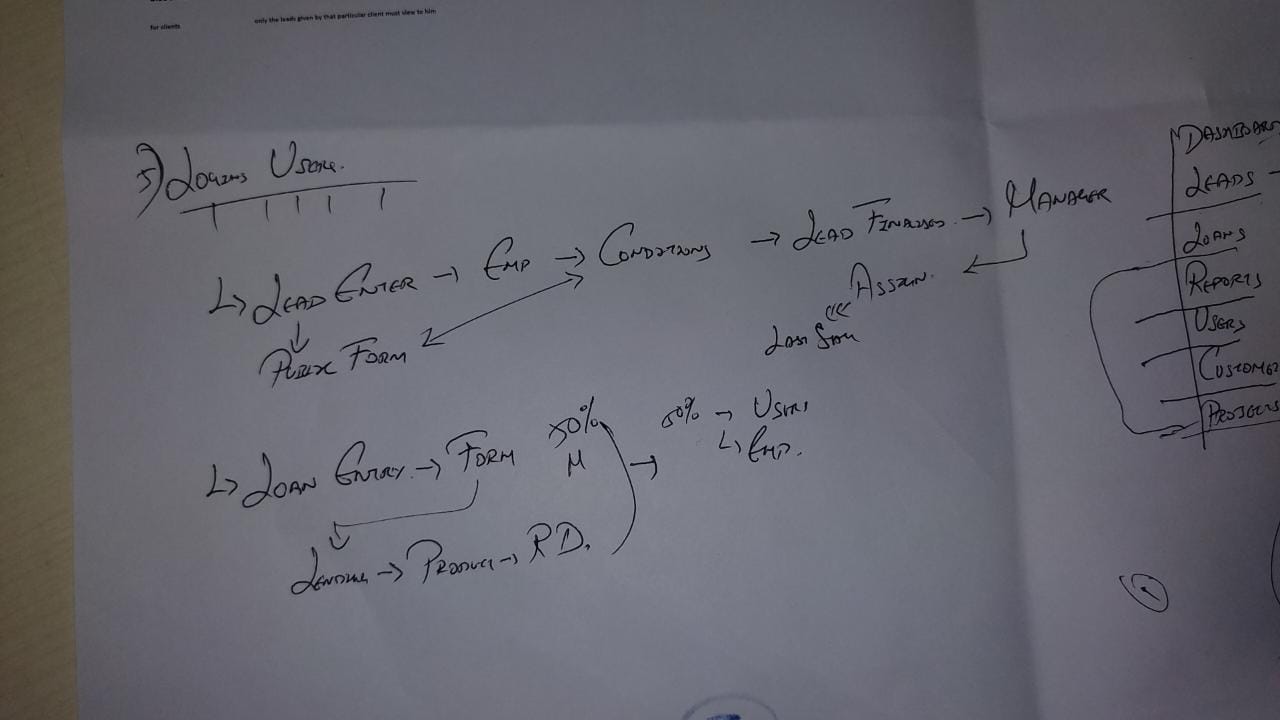 for clients only the leads given by that particular client must view to him
5) Logins Users.
↳ Lead Enter → Emp → Conditions → Lead Finalised → Manager
Assign.
Public Form
↳ Loan Entry → Form 50%
M
50% → Users
↳ Emp.
→ Product → RD.
Dashboar
Leads -
Loans
Reports
Users
Customer
Projects